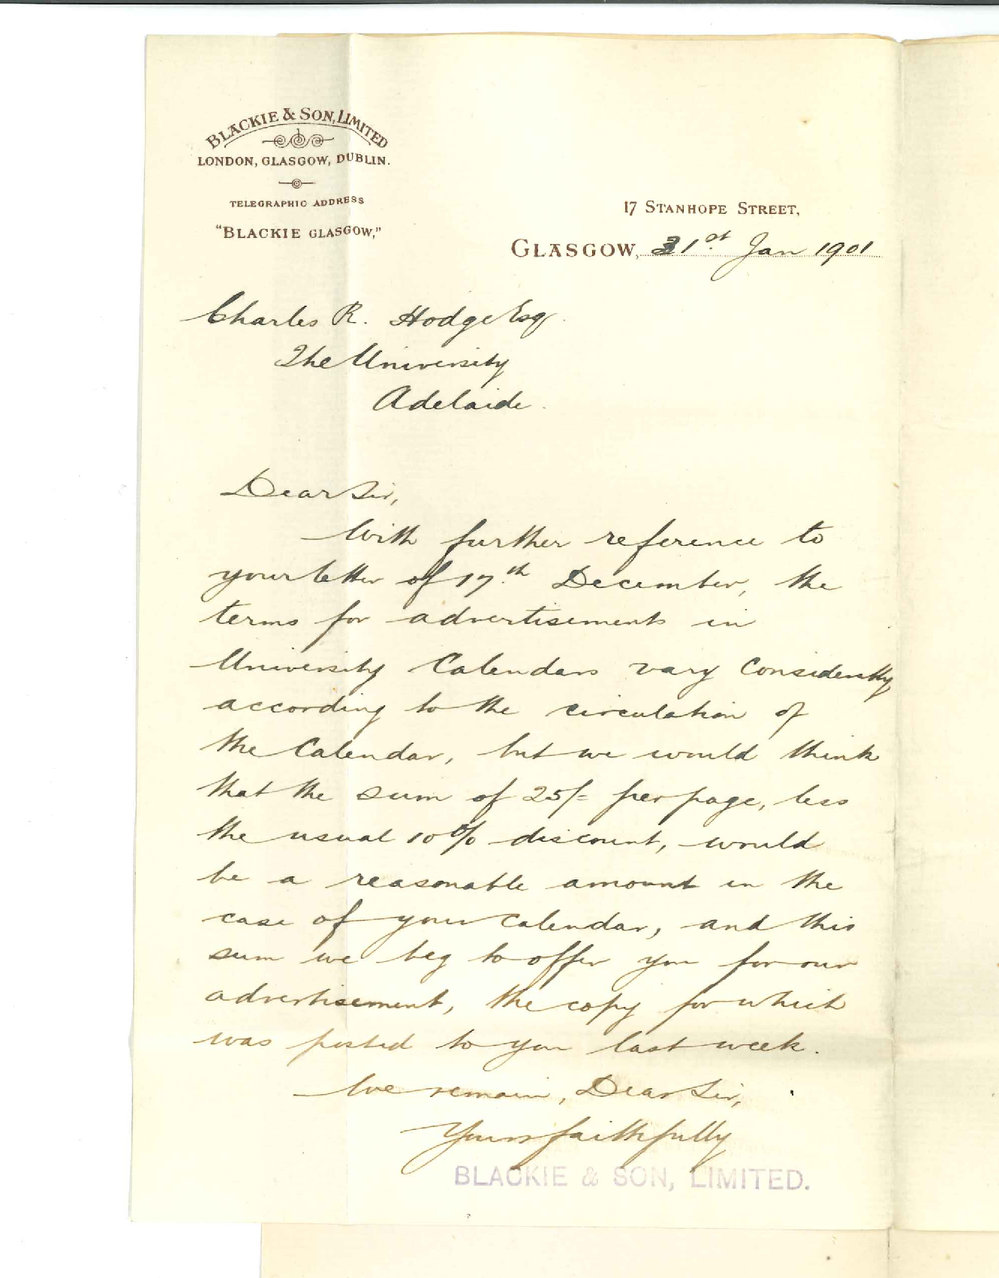 BLACKIE & SON, LIMITED
LONDON, GLASGOW, DUBLIN.
TELEGRAPHIC ADDRESS
"BLACKIE GLASGOW,"
17 STANHOPE STREET,
GLASGOW, 31st Jan 1901
Charles R. Hodge Esq.
The University
Adelaide.
Dear Sir,
With further reference to
your letter of 17th December, the
terms for advertisements in
University Calendars vary considerably
according to the circulation of
the Calendar, but we would think
that the sum of 25/= per page, less
the usual 10% discount, would
be a reasonable amount in the
case of your Calendar, and this
sum we beg to offer you for our
advertisement, the copy for which
was posted to you last week.
We remain, Dear Sir,
Yours faithfully
BLACKIE & SON, LIMITED.